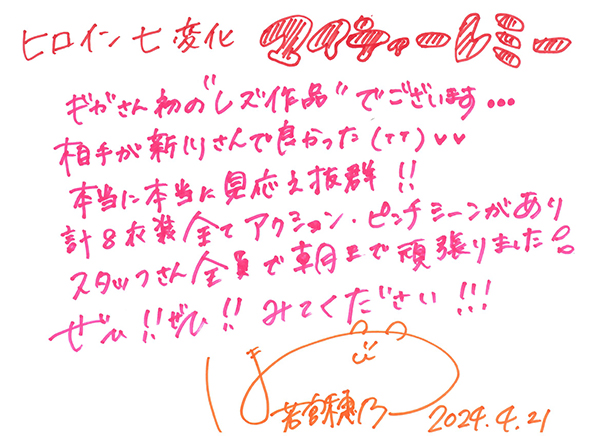 ヒロイン七変化 マイティールミー
ギガさん初の"レズ作品"でございます...
相手が新川さんで良かった(TT)♥♥
本当に本当に見応え抜群!!
計8衣装全てアクション・ピンチシーンがあり
スタッフさん全員で朝まで頑張りました。
ぜひ!!ぜひ!!みてください!!!
若宮穂乃
2024.4.21